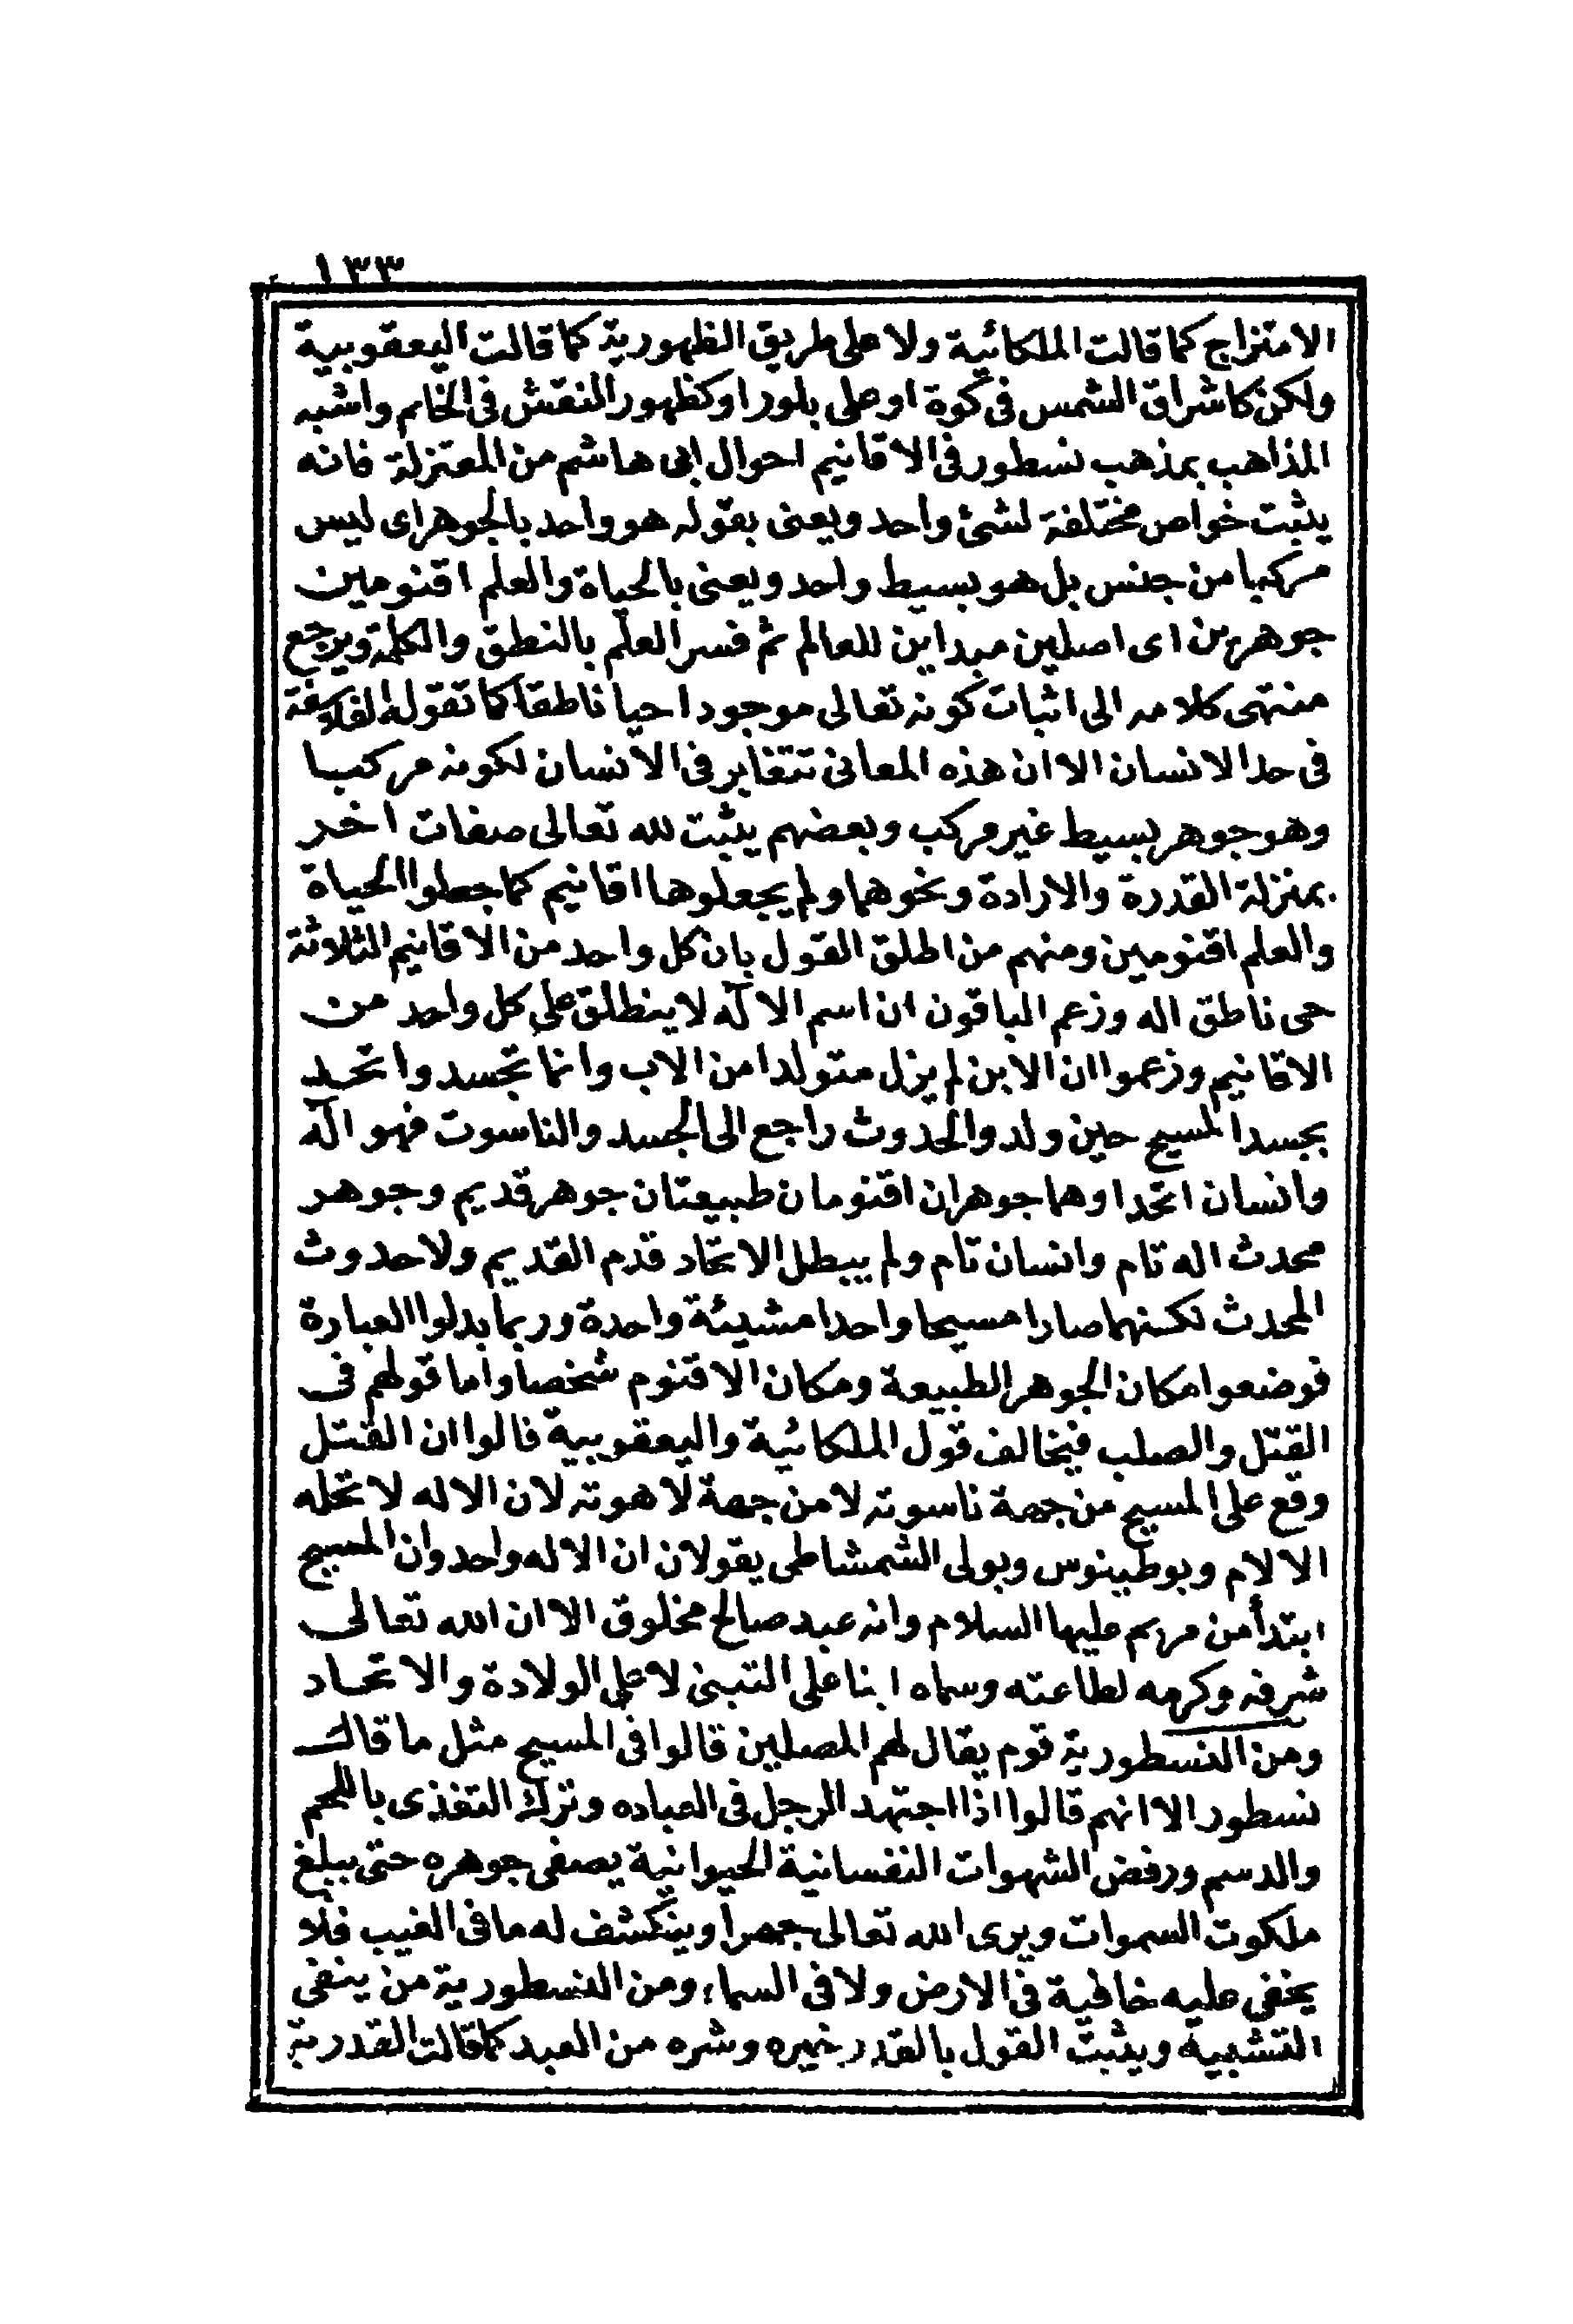 ١٣٣
الامتزاج كما قالت الملكائية ولا على طريق الظهورية كما قالت اليعقوبية
ولكن كاشراق الشمس فى كوة او على بلور او كظهور النقش فى الخاتم واشبه
المذاهب بمذهب نسطور فى الاقانيم احوال ابى هاشم من المعتزلة فانه
يثبت خواص مختلفة لشئ واحد ويعنى بقوله هو واحد بالجوهر اى ليس
مركبا من جنس بل هو بسيط واحد ويعنى بالحياة والعلم اقنومين
جوهرين اى اصلين مبداين للعالم ثم فسر العلم بالنطق والكلمة ويرجع
منتهى كلامه الى اثبات كونه تعالى موجودا حيا ناطقا كما تقوله الفلاسفة
فى حد الانسان الا ان هذه المعانى تتغاير فى الانسان لكونه مركبا
وهو جوهر بسيط غير مركب وبعضهم يثبت لله تعالى صفات اخر
بمنزلة القدرة والارادة ونحوهما ولم يجعلوها اقانيم كما جعلوا الحياة
والعلم اقنومين ومنهم من اطلق القول بان كل واحد من الاقانيم الثلاثة
حى ناطق اله وزعم الباقون ان اسم الاله لا ينطلق على كل واحد من
الاقانيم وزعموا ان الابن لم يزل متولدا من الاب وانما تجسد واتحد
بجسد المسيح حين ولد والحدوث راجع الى الجسد والناسوت فهو اله
وانسان اتحدا وهما جوهران اقنومان طبيعتان جوهر قديم وجوهر
محدث اله تام وانسان تام ولم يبطل الاتحاد قدم القديم ولا حدوث
المحدث لكنهما صارا مسيحا واحدا مشيئة واحدة وربما بدلوا العبارة
فوضعوا مكان الجوهر الطبيعة ومكان الاقنوم شخصا واما قولهم فى
القتل والصلب فيخالف قول الملكائية واليعقوبية قالوا ان القتل
وقع على المسيح من جهة ناسوته لا من جهة لاهوته لان الاله لا تحله
الالام وبوطينوس وبولى الشمشاطى يقولان ان الاله واحد وان المسيح
ابتدأ من مريم عليها السلام وانه عبد صالح مخلوق الا ان الله تعالى
شرفه وكرمه لطاعته وسماه ابنا على التبنى لا على الولادة والاتحاد
ومن النسطورية قوم يقال لهم المصلين قالوا فى المسيح مثل ما قال
نسطور الا انهم قالوا اذا اجتهد الرجل فى العباده وترك التغذى باللحم
والدسم ورفض الشهوات النفسانية الحيوانية يصفى جوهره حتى يبلغ
ملكوت السموات ويرى الله تعالى جهرا وينكشف له ما فى الغيب فلا
يخفى عليه خافية فى الارض ولا فى السماء ومن النسطورية من ينفى
التشبيه ويثبت القول بالقدر خيره وشره من العبد كما قالت القدرية